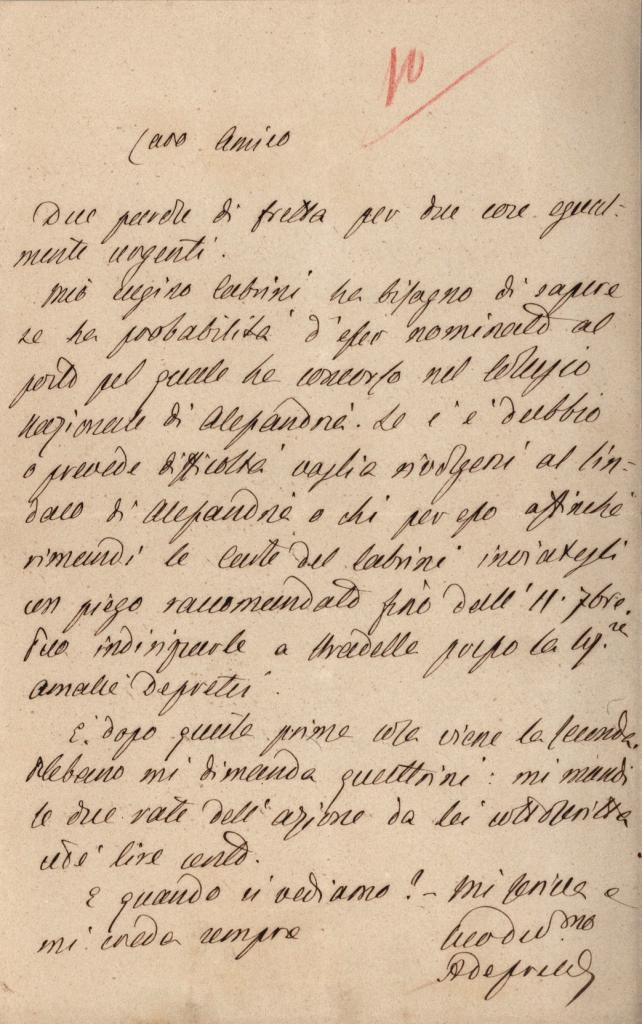 10
Caro Amico
Due parole di fretta per due cose egual-
mente urgenti.
Mio cugino Cabrini ha bisogno di sapere
se ha probabilità d'esser nominato al
posto pel quale ha concorso nel Collegio
Nazionale di Alessandria. Se c'è dubbio
o prevede difficoltà voglia rivolgersi al Sin-
daco di Alessandria o chi per esso affinché
rimandi le carte del Cabrini inviategli
con piego raccomandato fino dall' 11. 7bre.
indirizzarle a Stradella presso la Sig.ra
Amalia Depretis.
E dopo questa prima cosa viene la seconda.
Plebano mi dimanda quattrini: mi mandi
le due rate dell'azione da lei sottoscritta
cioè lire cento.
E quando ci vediamo? - Mi scriva e
mi creda sempre
ADepretis